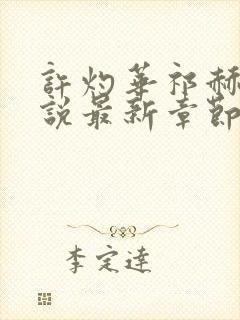 許灼華祁赫
說最新章節
李定達